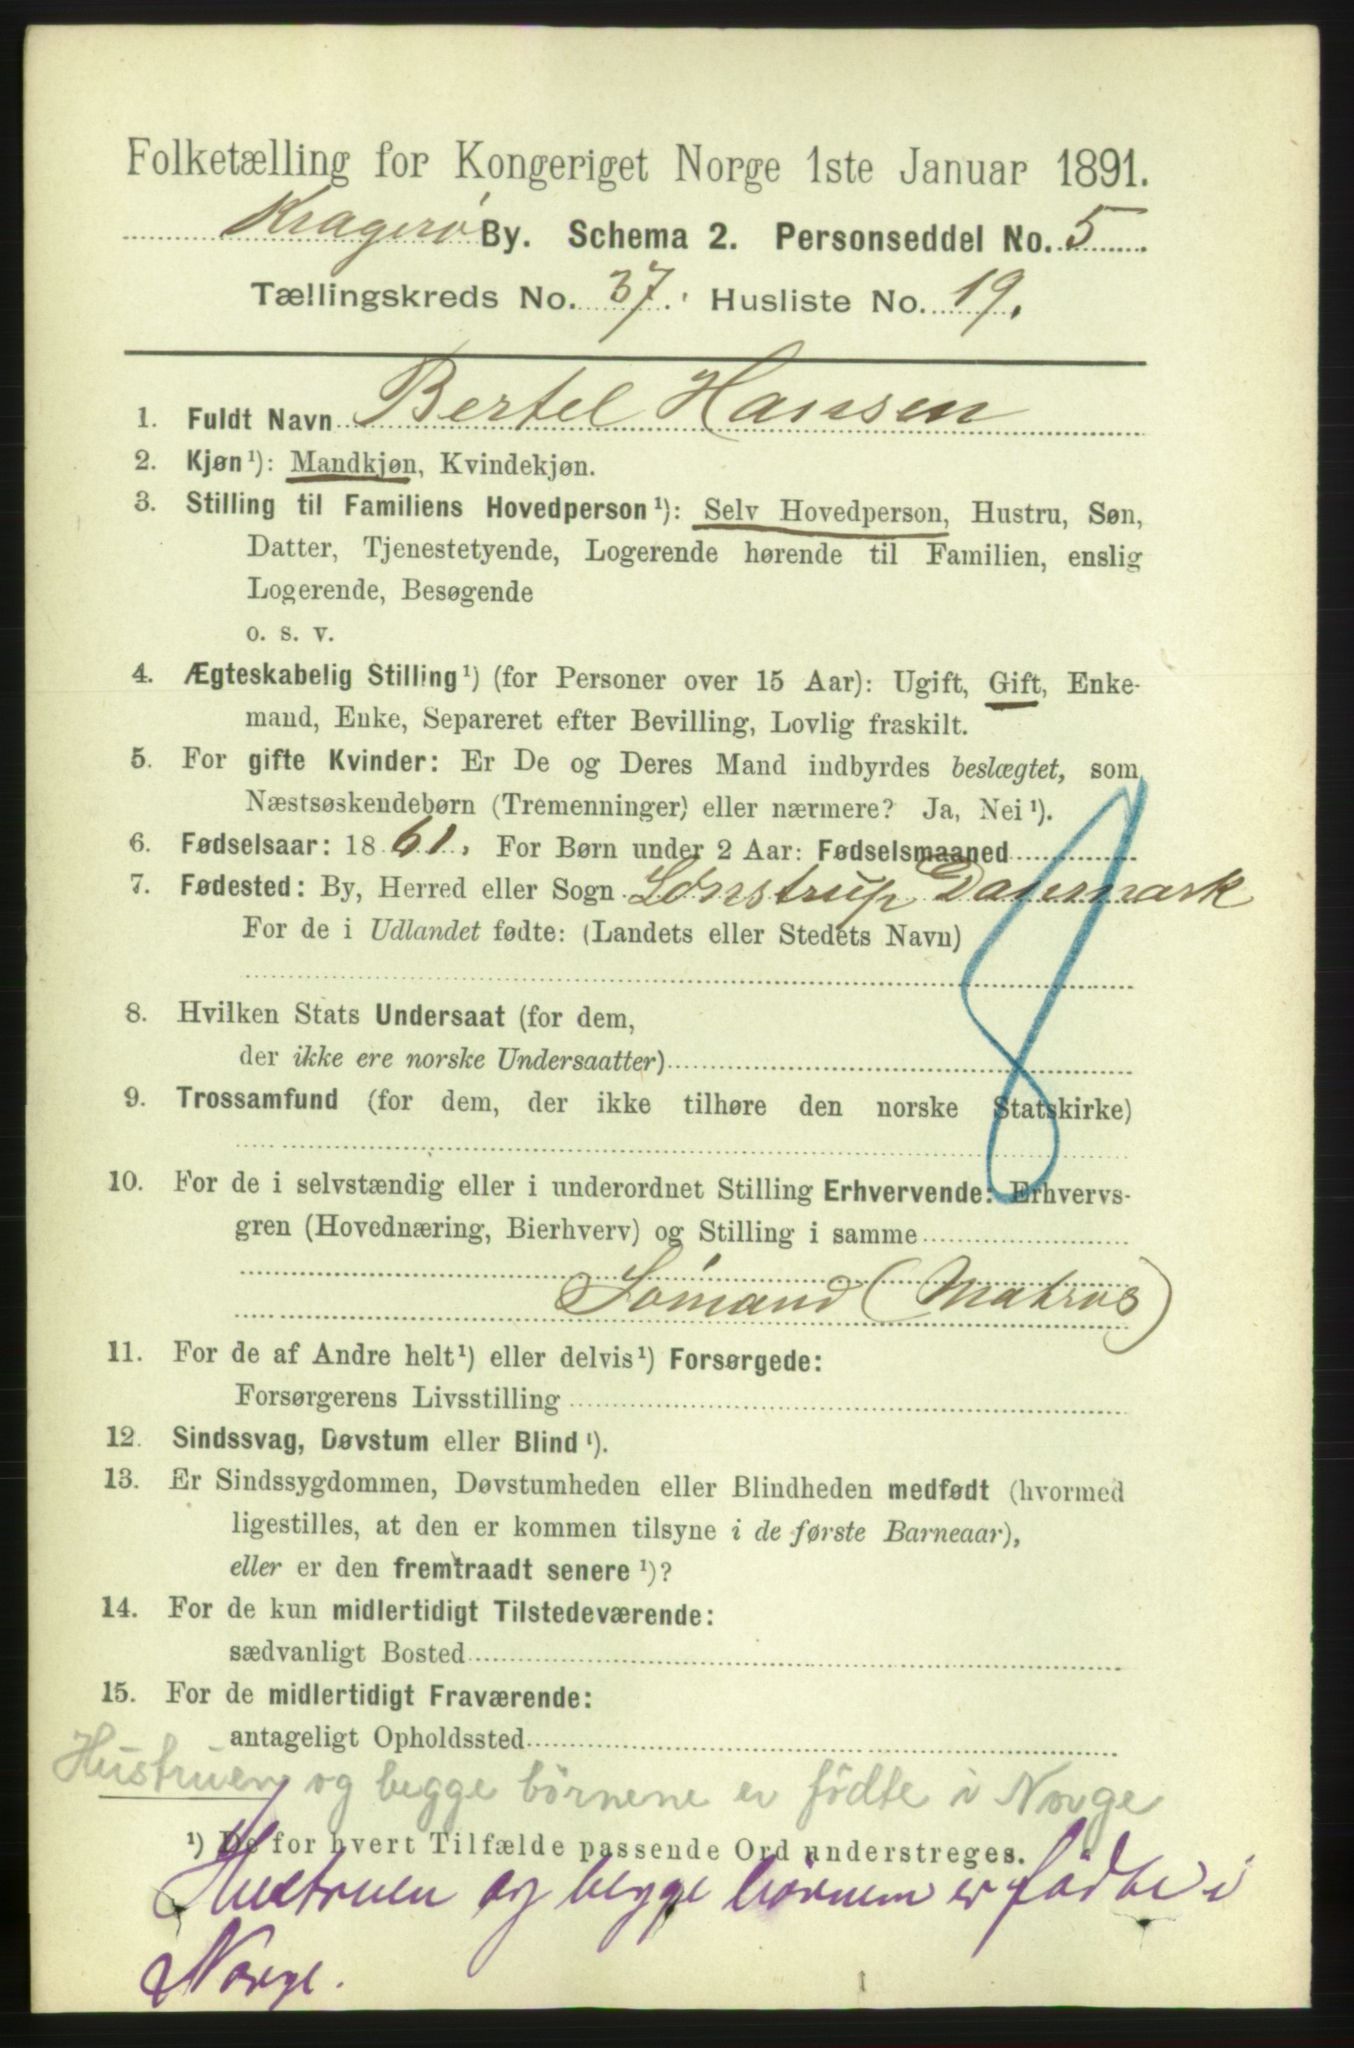 Folketælling for Kongeriget Norge 1ste Januar 1891.
Kragerø By. Schema 2. Personseddel No. 5
Tællingskreds No. 37. Husliste No. 19.
1. Fuldt Navn Bertel Hansen
2. Kjøn¹): Mandkjøn, Kvindekjøn.
3. Stilling til Familiens Hovedperson¹): Selv Hovedperson, Hustru, Søn,
Datter, Tjenestetyende, Logerende hørende til Familien, enslig
Logerende, Besøgende
o. s. v.
4. Ægteskabelig Stilling¹) (for Personer over 15 Aar): Ugift, Gift, Enke-
mand, Enke, Separeret efter Bevilling, Lovlig fraskilt.
5. For gifte Kvinder: Er De og Deres Mand indbyrdes beslægtet, som
Næstsøskendebørn (Tremenninger) eller nærmere? Ja, Nei¹).
6. Fødselsaar: 1861. For Børn under 2 Aar: Fødselsmaaned
7. Fødested: By, Herred eller Sogn Lønstrup Danmark
For de i Udlandet fødte: (Landets eller Stedets Navn)
8
8. Hvilken Stats Undersaat (for dem,
der ikke ere norske Undersaatter)
9. Trossamfund (for dem, der ikke tilhøre den norske Statskirke)
10. For de i selvstændig eller i underordnet Stilling Erhvervende: Erhvervs-
gren (Hovednæring, Bierhverv) og Stilling i samme
Sømand (Matros)
11. For de af Andre helt¹) eller delvis¹) Forsørgede:
Forsørgerens Livsstilling
12. Sindssvag, Døvstum eller Blind¹).
13. Er Sindssygdommen, Døvstumheden eller Blindheden medfødt (hvormed
ligestilles, at den er kommen tilsyne i de første Barneaar),
eller er den fremtraadt senere¹)?
14. For de kun midlertidigt Tilstedeværende:
sædvanligt Bosted
15. For de midlertidigt Fraværende:
antageligt Opholdssted
Hustruen og begge børnene er fødte i Norge
¹) De for hvert Tilfælde passende Ord understreges.
Hustruen og begge børnene er fødte i
Norge.